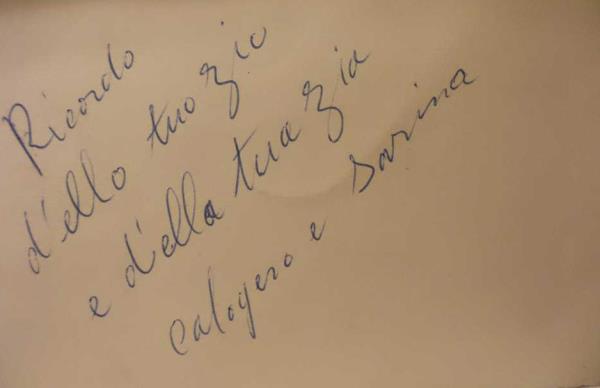 Ricordo
d'ello tuo zio
e d'ella tua zia
calogero e sarina